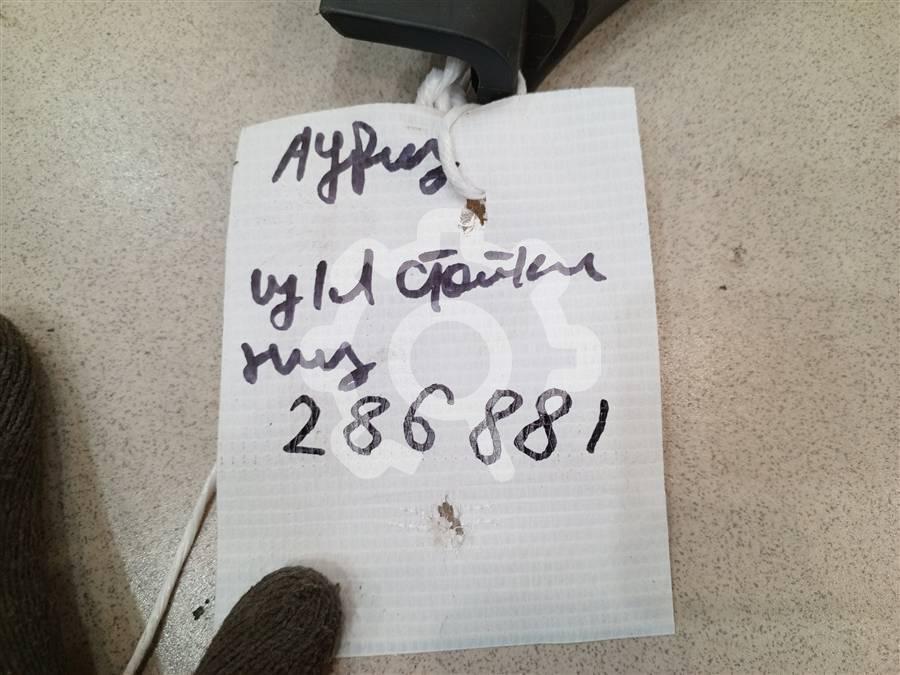 Аурис
стойки
низ
286881